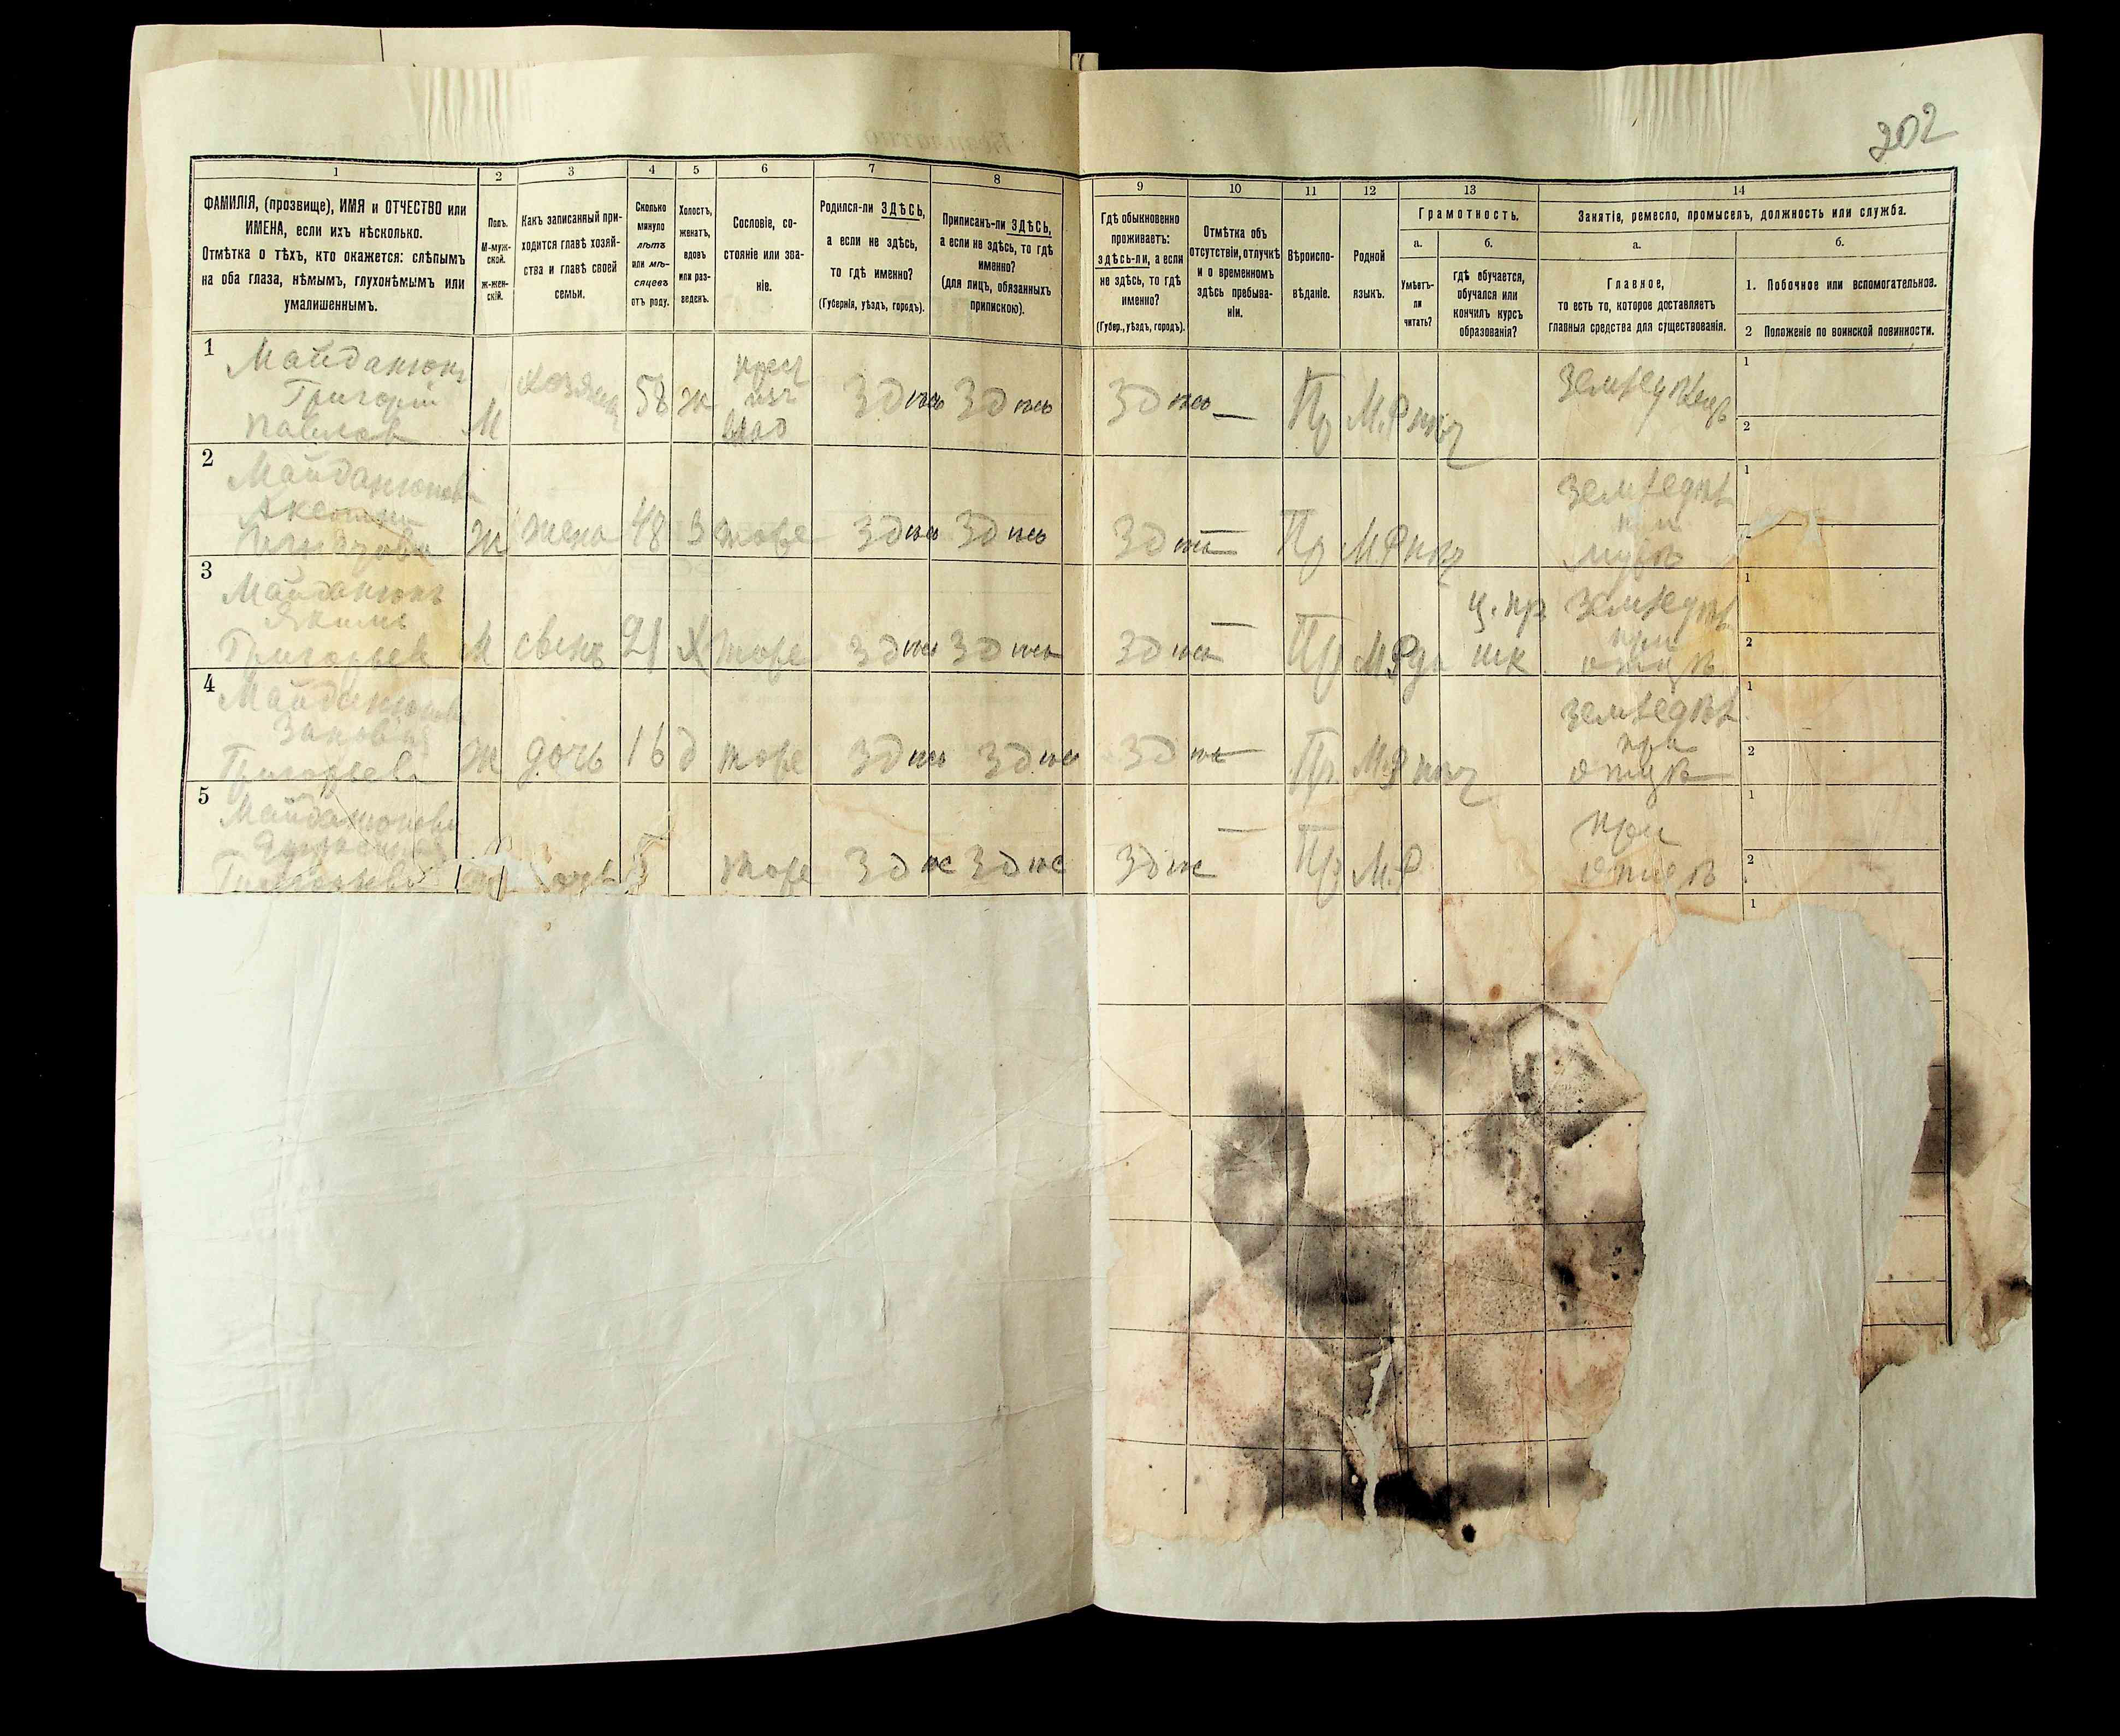 202
1
2
3
4
5
6
7
8
9
10
11
12
13
14
ФАМИЛІЯ, (прозвище), ИМЯ и ОТЧЕСТВО или
ИМЕНА, если ихъ нѣсколько.
Отмѣтка о тѣхъ, кто окажется: слѣпымъ
на оба глаза, нѣмымъ, глухонѣмымъ или
умалишеннымъ.
Полъ.
М-муж-
ской.
ж-жен-
скій.
Какъ записанный при-
ходится главѣ хозяй-
ства и главѣ своей
семьи.
Сколько
минуло
лѣтъ
или мѣ-
сяцевъ
отъ роду.
Холостъ,
женатъ,
вдовъ
или раз-
веденъ.
Сословіе, со-
стояніе или зва-
ніе.
Родился-ли ЗДѢСЬ,
а если не здѣсь,
то гдѣ именно?
(Губернія, уѣздъ, городъ).
Приписанъ-ли ЗДѢСЬ,
а если не здѣсь, то гдѣ
именно?
(для лицъ, обязанныхъ
припискою).
Гдѣ обыкновенно
проживаетъ:
здѣсь-ли, а если
не здѣсь, то гдѣ
именно?
(Губер., уѣздъ, городъ).
Отмѣтка объ
отсутствіи, отлучкѣ
и о временномъ
здѣсь пребыва-
ніи.
Вѣроиспо-
вѣданіе.
Родной
языкъ.
Грамотность.
а.
б.
Умѣетъ-
ли
читать?
гдѣ обучается,
обучался или
кончилъ курсъ
образованія?
Занятія, ремесло, промыселъ, должность или служба.
а.
б.
Главное,
то есть то, которое доставляетъ
главныя средства для существованія.
1. Побочное или вспомогательное.
2 Положеніе по воинской повинности.
1
Майданюкъ
Григорій
Павлов
М
хозяинъ
58
ж
крест
изъ
влад
Здѣсь
Здѣсь
Здѣсь
—
Пр
М.Р
нѣт
Земледѣлецъ
1
2
2
Майданюкова
Ж
жена
48
З
тоже
Здѣсь
Здѣсь
Здѣсь
—
Пр
М.Р
нѣт
Земледѣл
при
мужѣ
1
3
Майданюкъ
Якимъ
Григорьев
М
сынъ
21
Х
тоже
Здѣсь
Здѣсь
Здѣсь
—
Пр
М.Р
да
ц. пр
шк
Земледѣл
при
отцѣ
1
2
4
Майданюкова
Зиновія
Григорьева
Ж
дочь
16
д
тоже
Здѣсь
Здѣсь
Здѣсь
—
Пр.
М.Р
нѣт
Земледѣл
при
отцѣ
1
2
5
Майданюкова
Григорьева
5
тоже
Здѣс
Здѣс
Здѣс
—
Пр
М.Р
при
отцѣ
1
2
1